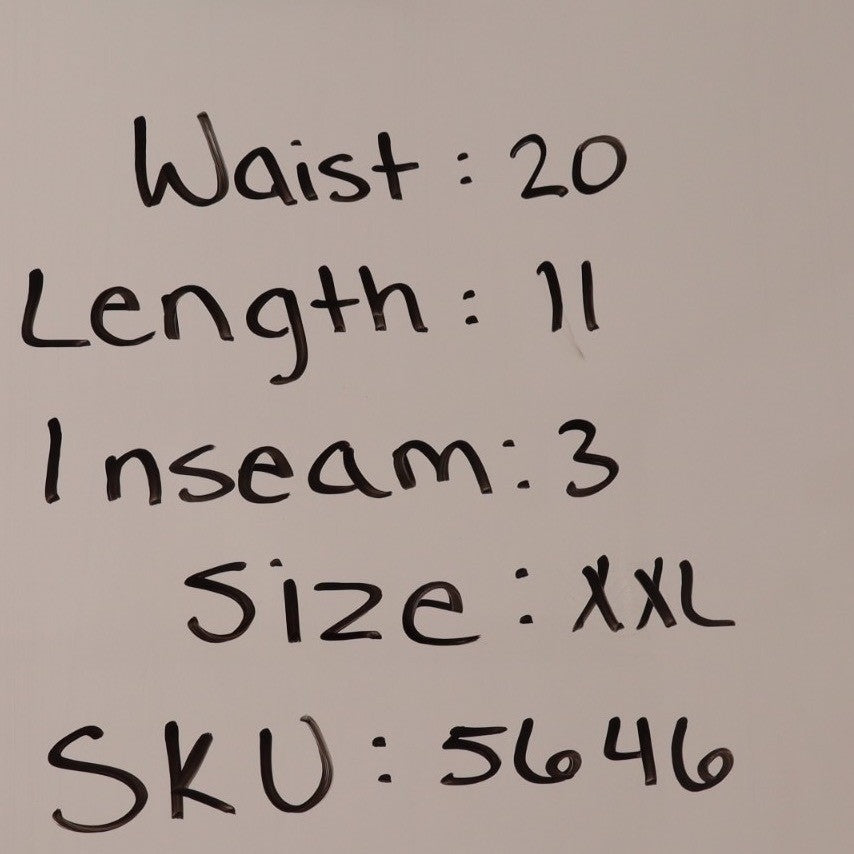 Waist: 20
Length: 11
Inseam: 3
Size: XXL
SKU: 5646